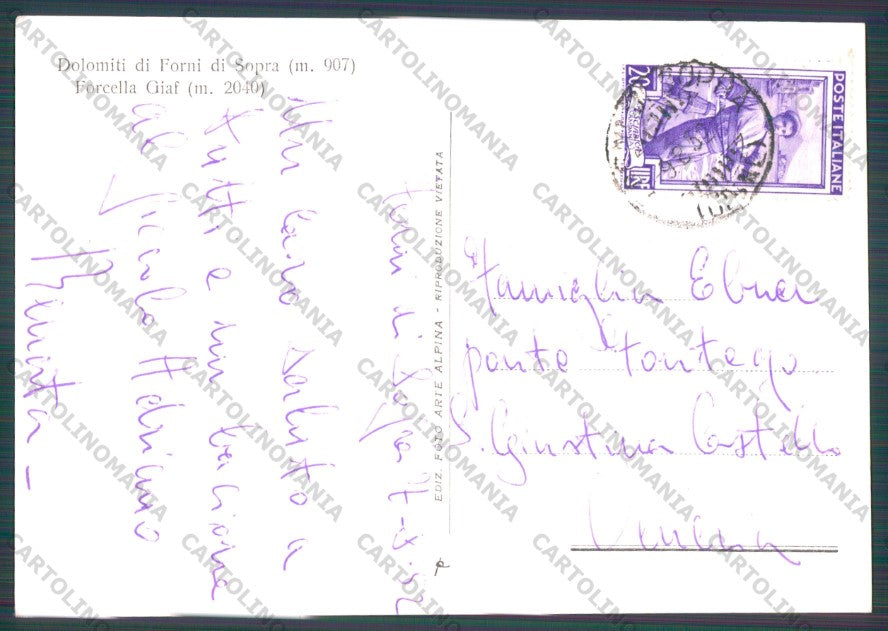 Dolomiti di Forni di Sopra (m. 907)
Forcella Giaf (m. 2040)
Forni di Sopra
Un caro saluto a
tutti e un bacione
al piccolo Adriano
EDIZ. FOTO ARTE ALPINA - RIPRODUZIONE VIETATA
POSTE ITALIANE
LIRE 20
Famiglia Ebner
ponte Fontego
S. Giustina Castello
Venezia
CARTOLINOMANIA